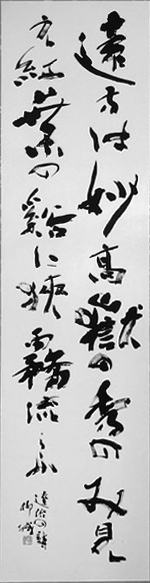 遠方は妙高嶽の秀のみ見
え紅葉の谿に狭霧流らふ